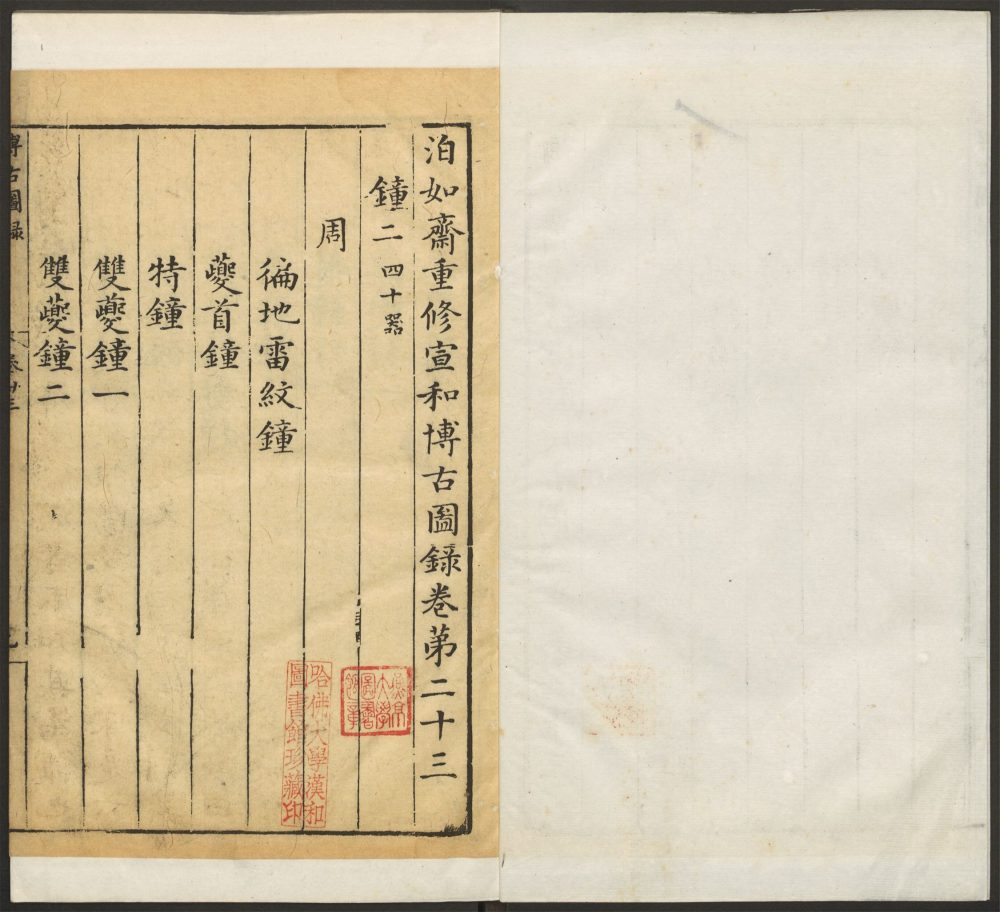 泊如齋重修宣和博古圖錄卷第二十三
鐘二 四十器
周
徧地雷紋鐘
夔首鐘
特鐘
雙夔鐘一
雙夔鐘二
博古圖錄
卷廿三
哈佛大學漢和
圖書館珍藏印